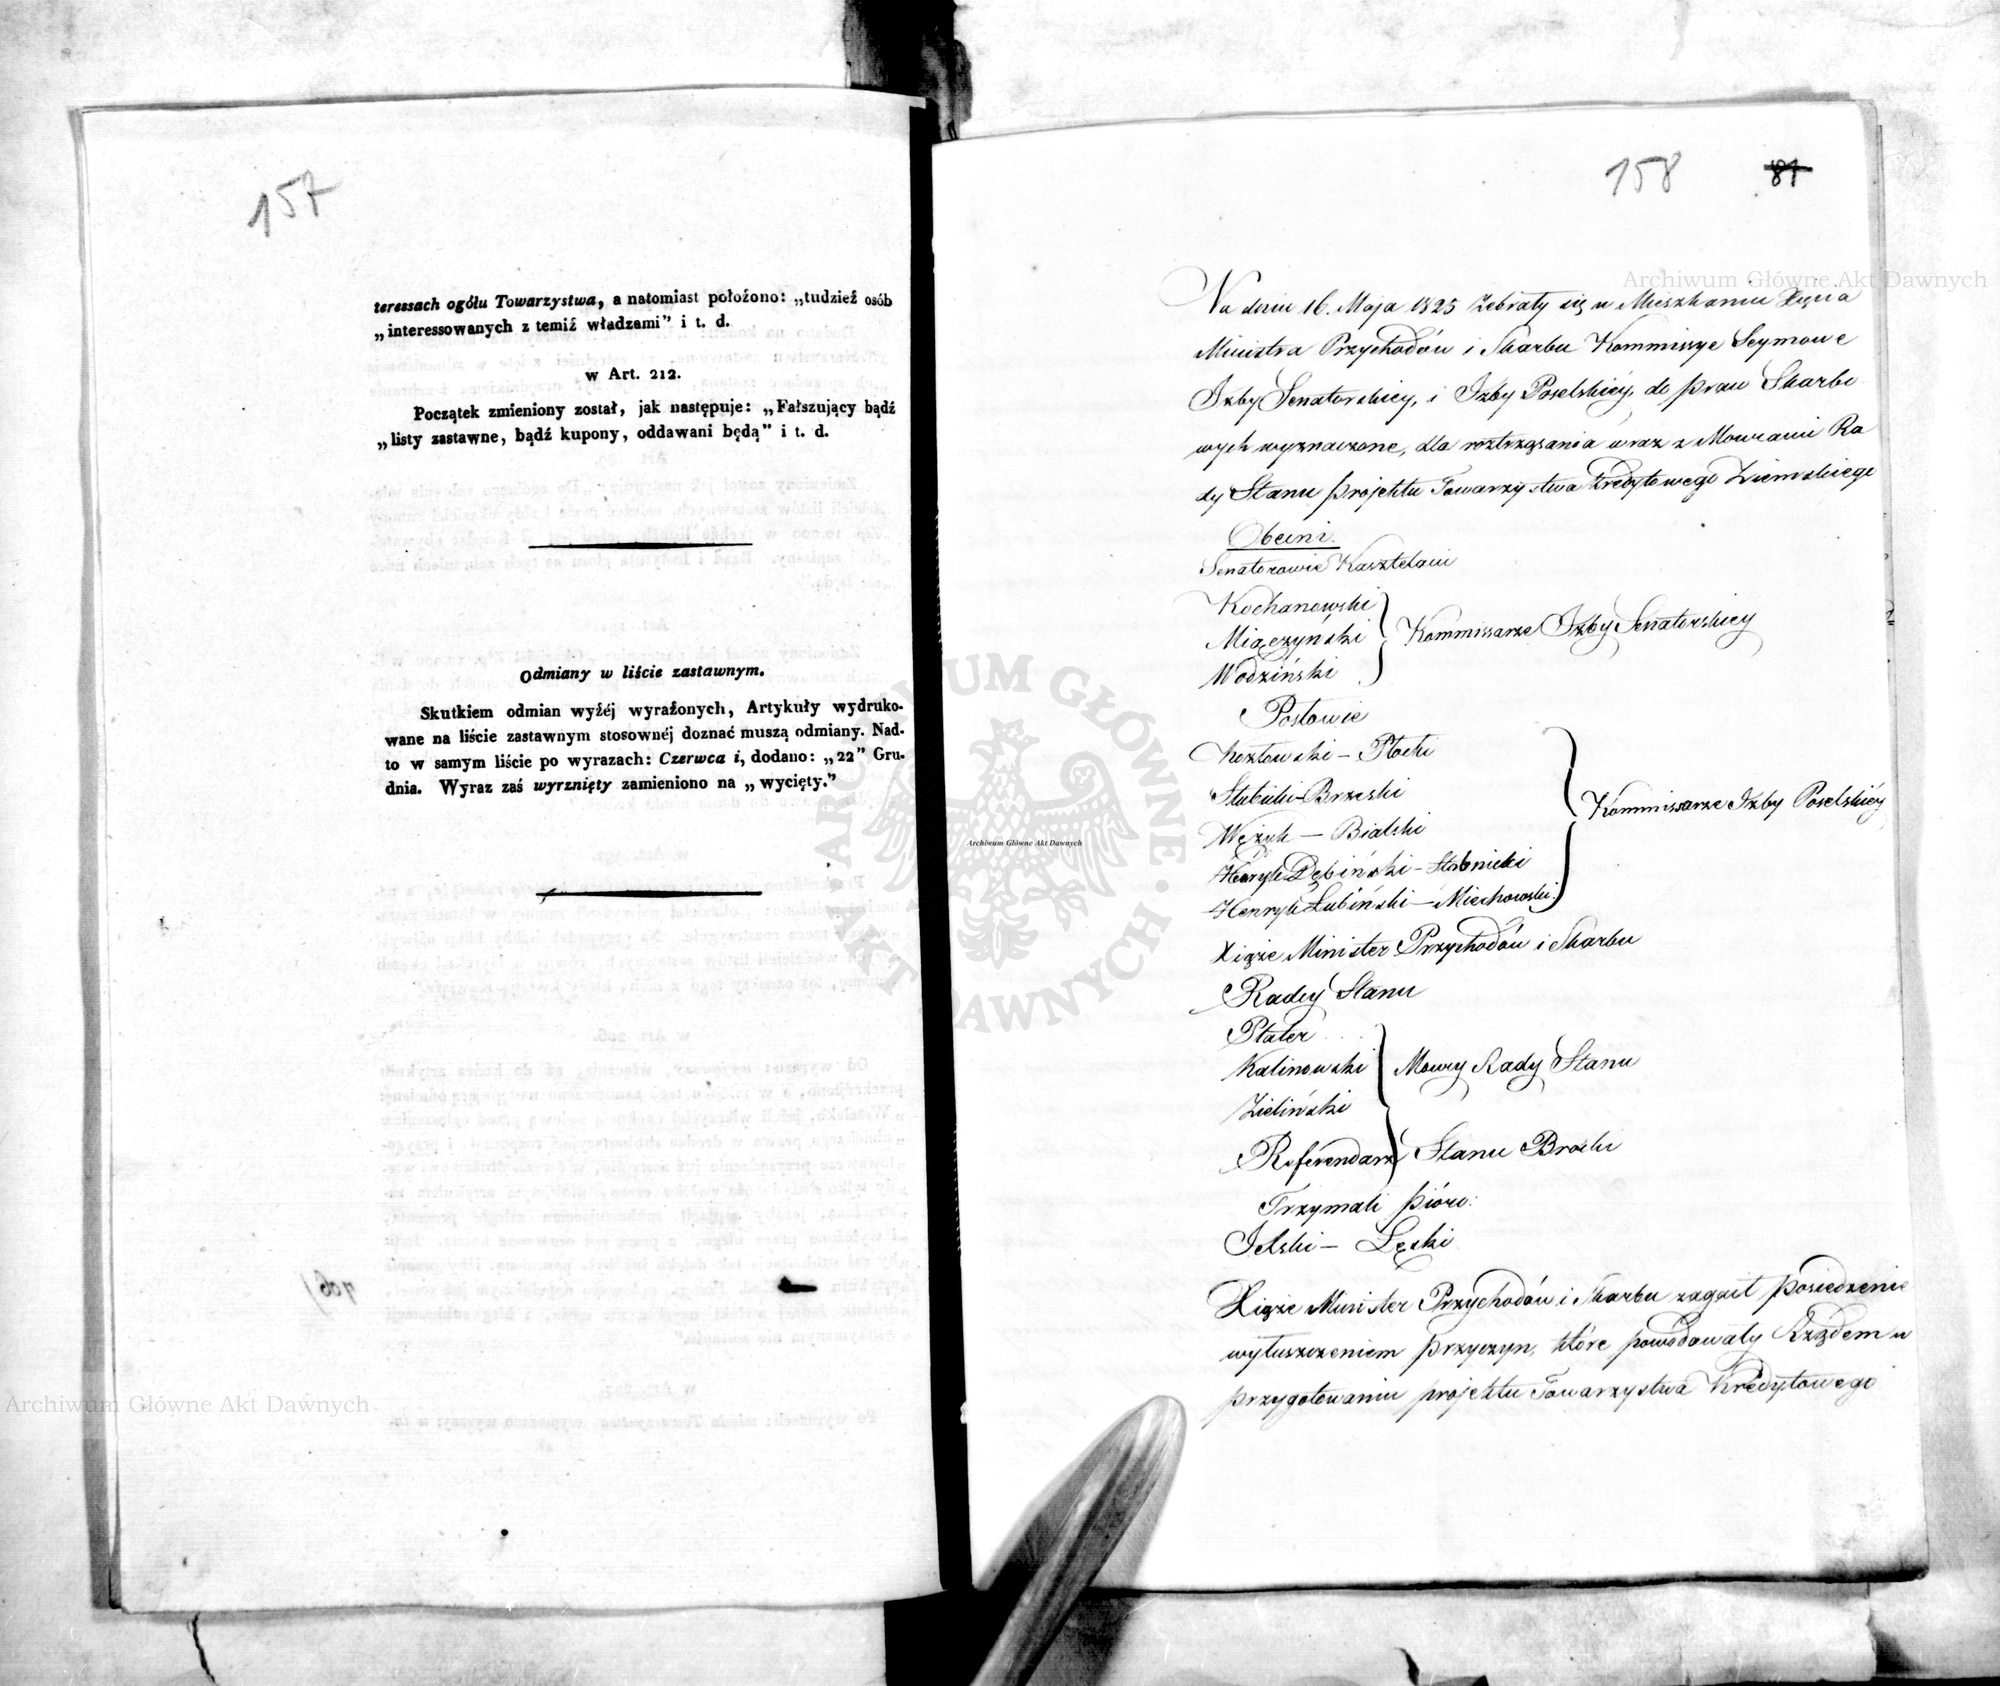 157
teressach ogółu Towarzystwa, a natomiast położono: „tudzież osób
„interessowanych z temiż władzami” i t. d.
w Art. 212.
Początek zmieniony został, jak następuje: „Fałszujący bądź
„listy zastawne, bądź kupony, oddawani będą” i t. d.
Odmiany w liście zastawnym.
Skutkiem odmian wyżéj wyrażonych, Artykuły wydruko-
wane na liście zastawnym stosownéj doznać muszą odmiany. Nad-
to w samym liście po wyrazach: Czerwca i, dodano: „22” Gru-
dnia. Wyraz zaś wyrznięty zamieniono na „wycięty.”
Archiwum Główne Akt Dawnych
158 87
Archiwum Główne Akt Dawnych
Na dniu 16. Maja 1825 Zebrały się w Mieszkaniu Xięcia
Ministra Przychodów i Skarbu Kommissye Seymowe
Izby Senatorskiey, i Izby Poselskiéy, do praw Skarbo
wych wyznaczone, dla roztrząsania wraz z Mowcami Ra
dy Stanu projektu Towarzystwa Kredytowego Ziemskiego
Obecni.
Senatorowie Kasztelani
Kochanowski
Miączyński Kommissarze Izby Senatorskiey
Wodziński
Posłowie
Kozłowski – Płocki
Słubicki – Brzeski Kommissarze Izby Poselskiéy
Wężyk — Bialski
Henryk Dębiński – Stobnicki
Henryk Łubiński — Miechowski
Xiąże Minister Przychodów i Skarbu
Radcy Stanu
Plater
Kalinowski Mowcy Rady Stanu
Zieliński
Referendarz Stanu Brocki
Trzymali pióro:
Jelski – Łęski
Xiąże Minister Przychodów i Skarbu zagaił posiedzenie
wyłuszczeniem przyczyn, które powodowały Rządem w
przygotowaniu projektu Towarzystwa Kredytowego
ARCHIWUM GŁÓWNE AKT DAWNYCH
Archiwum Główne Akt Dawnych